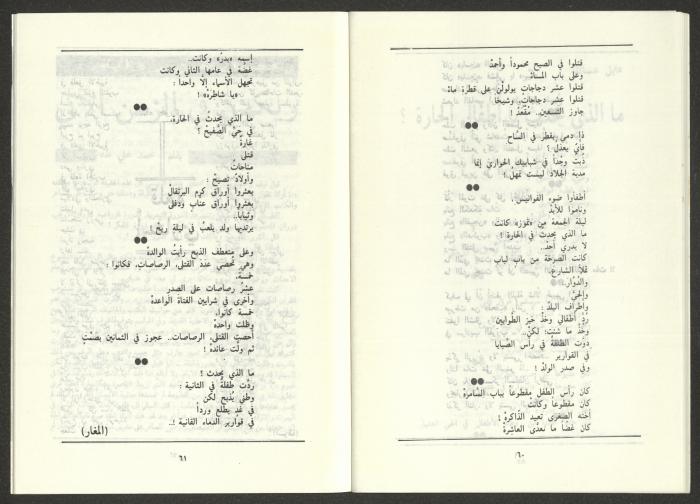 قتلوا في الصبح محموداً وأحمدْ
وعلى باب المساءْ
قتلوا عشر دجاجاتٍ يولولْن على قطرة ماءْ
قتلوا عشر دجاجاتٍ، وشيخا
جاوز التسعين.. مُقْعَدْ !
●●
ذا دمي يقطر في السّاح
فأيٌ يعدلُ ؟
ذبتُ وجْداً في شبابيك الحواري إنما
مدية الجلاّد ليست تمهلُ !
●●
أطفأوا ضوء الفوانيس.
وناموا للأبدْ
ليلة الجمعة من «تموز» كانت
ما الذي يحدثُ في الحارة !
لا يدري أحدْ..
كانت الصرخة من بابٍ لباب
تملأ الشارع.
والدُوّار
والحيَّ
وأطراف البلدْ :
رُدَّ أطفالي وخُذْ خبز الطوابين
وخُذْ ما شئت: لكنْ..
دوّت الطلقةُ في رأس الصبايا
في القوارير
وفي صدر الولدْ !
●●
كان رأس الطفل مقطوعاً بباب السامرهْ
كان مقطوعاً وكانت
أخته الصغرى تعيد الذاكرهْ !
كان غضّاً ما تعدّى العاشرهْ
٦٠
إسمه «بدر» وكانت..
غضّة في عامها الثاني وكانت
تجهل الأسماء إلا واحداً :
«يا شاطرهْ» !
●●
ما الذي يحدث في الحارة،
في حيّ الصفيحْ ؟
غارةٌ
قتلى
مناحاتٌ
وأولادٌ تصيحْ :
بعثروا أوراق كرم البرتقالْ
بعثروا أوراق عنابٍ ودفلى
وثياباً..
يرتديها ولد يلعبُ في ليلة ريحْ !
●●
وعلى منعطف الذبح رأيتُ الوالدهْ
وهي تُحصي عدد القتلى، الرصاصات، فكانوا :
خمسةً،
عشرُ رصاصات على الصدر
وأخرى في شرايين الفتاة الواعدهْ
خمسة كانوا،
وظلت واحدهْ
أحصتِ القتلى، الرصاصات.. عجوز في الثمانين بصمْتٍ
ثم ولّت عائدهْ !
●●
ما الذي يحدث !
ردّت طفلةٌ في الثانية :
وطني يُذبح لكن
في غدٍ يطلع ورداً
في قوارير الدماء القانية !..
(المغار)
٦١